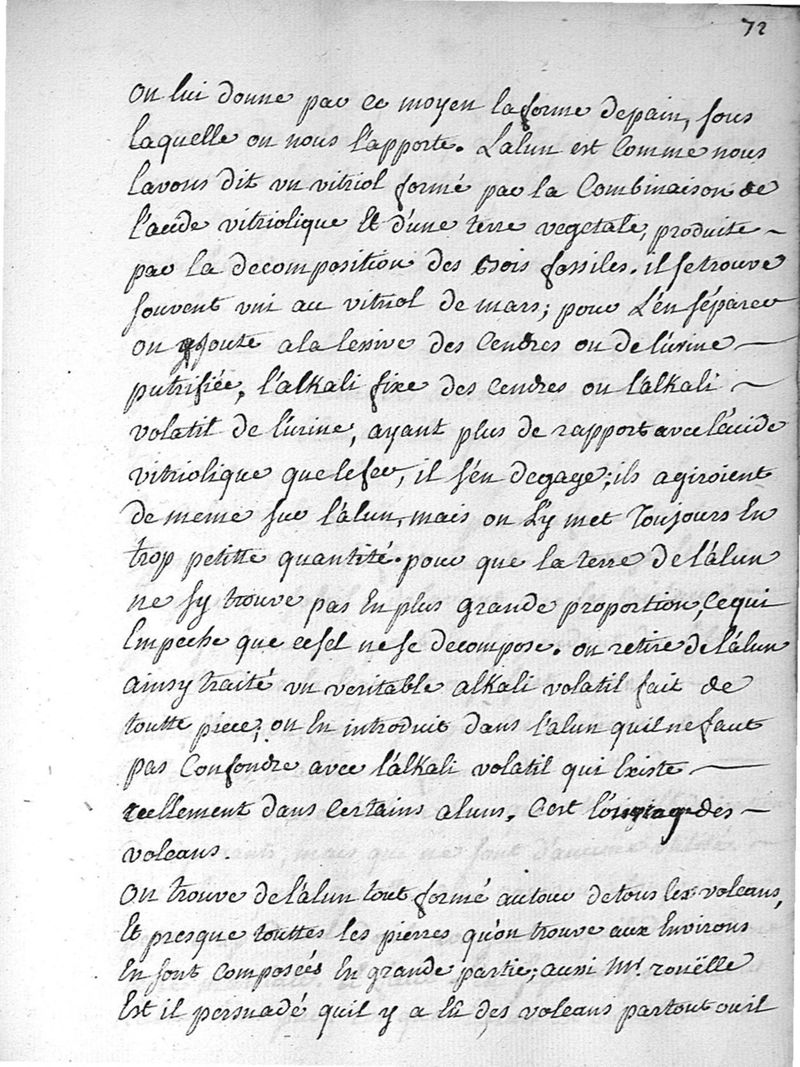 72
On lui donne par ce moyen la forme de pain, sous
laquelle on nous l'apporte. L'alun est Comme nous
l'avons dit un vitriol formé par la Combinaison de
l'acide vitriolique Et d'une terre vegetale, produite
par la decomposition des bois fossiles. il se trouve
souvent uni au vitriol de mars; pour L'en séparer
on ajoute a la lessive des Cendres ou de l'urine
putrifiée, l'alkali fixe des Cendres ou l'alkali
volatil de l'urine, ayant plus de rapport avec l'acide
vitriolique que le fer, il s'en degage; ils agiroient
de meme sur l'alun, mais on L'y met Toujours En
trop petitte quantité. pour que la terre de l'alun
ne sy trouve pas En plus grande proportion, Ce qui
Empeche que ce sel ne se decompose. on retire de l'alun
ainsy traité un veritable alkali volatil fait de
toutte piece, on En introduit dans l'alun quil ne faut
pas Confondre avec l'alkali volatil qui Existe
reellement dans Certains aluns. C'est des
volcans.
On trouve de l'alun tout formé autour de tous les volcans,
Et presque touttes les pierres qu'on trouve aux Environs
En sont Composées En grande partie; aussi Mr. rouëlle
Est il persuadé quil y a Eû des volcans partout ou il